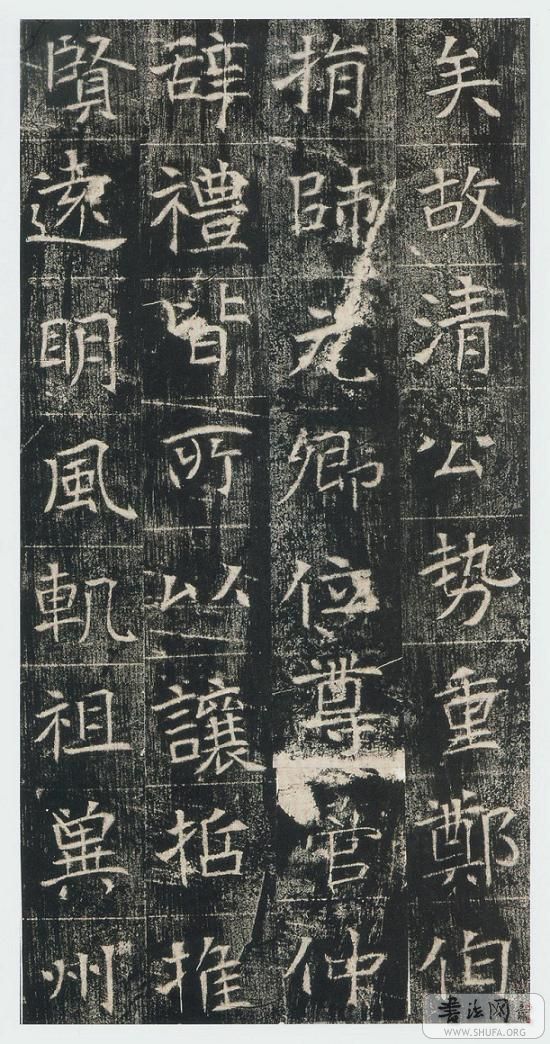 矣故清公勢重鄭伯
捐師元卿位尊管仲
辭禮皆所以讓哲推
賢遠明風軌祖冀州
书法网
WWW.SHUFA.ORG